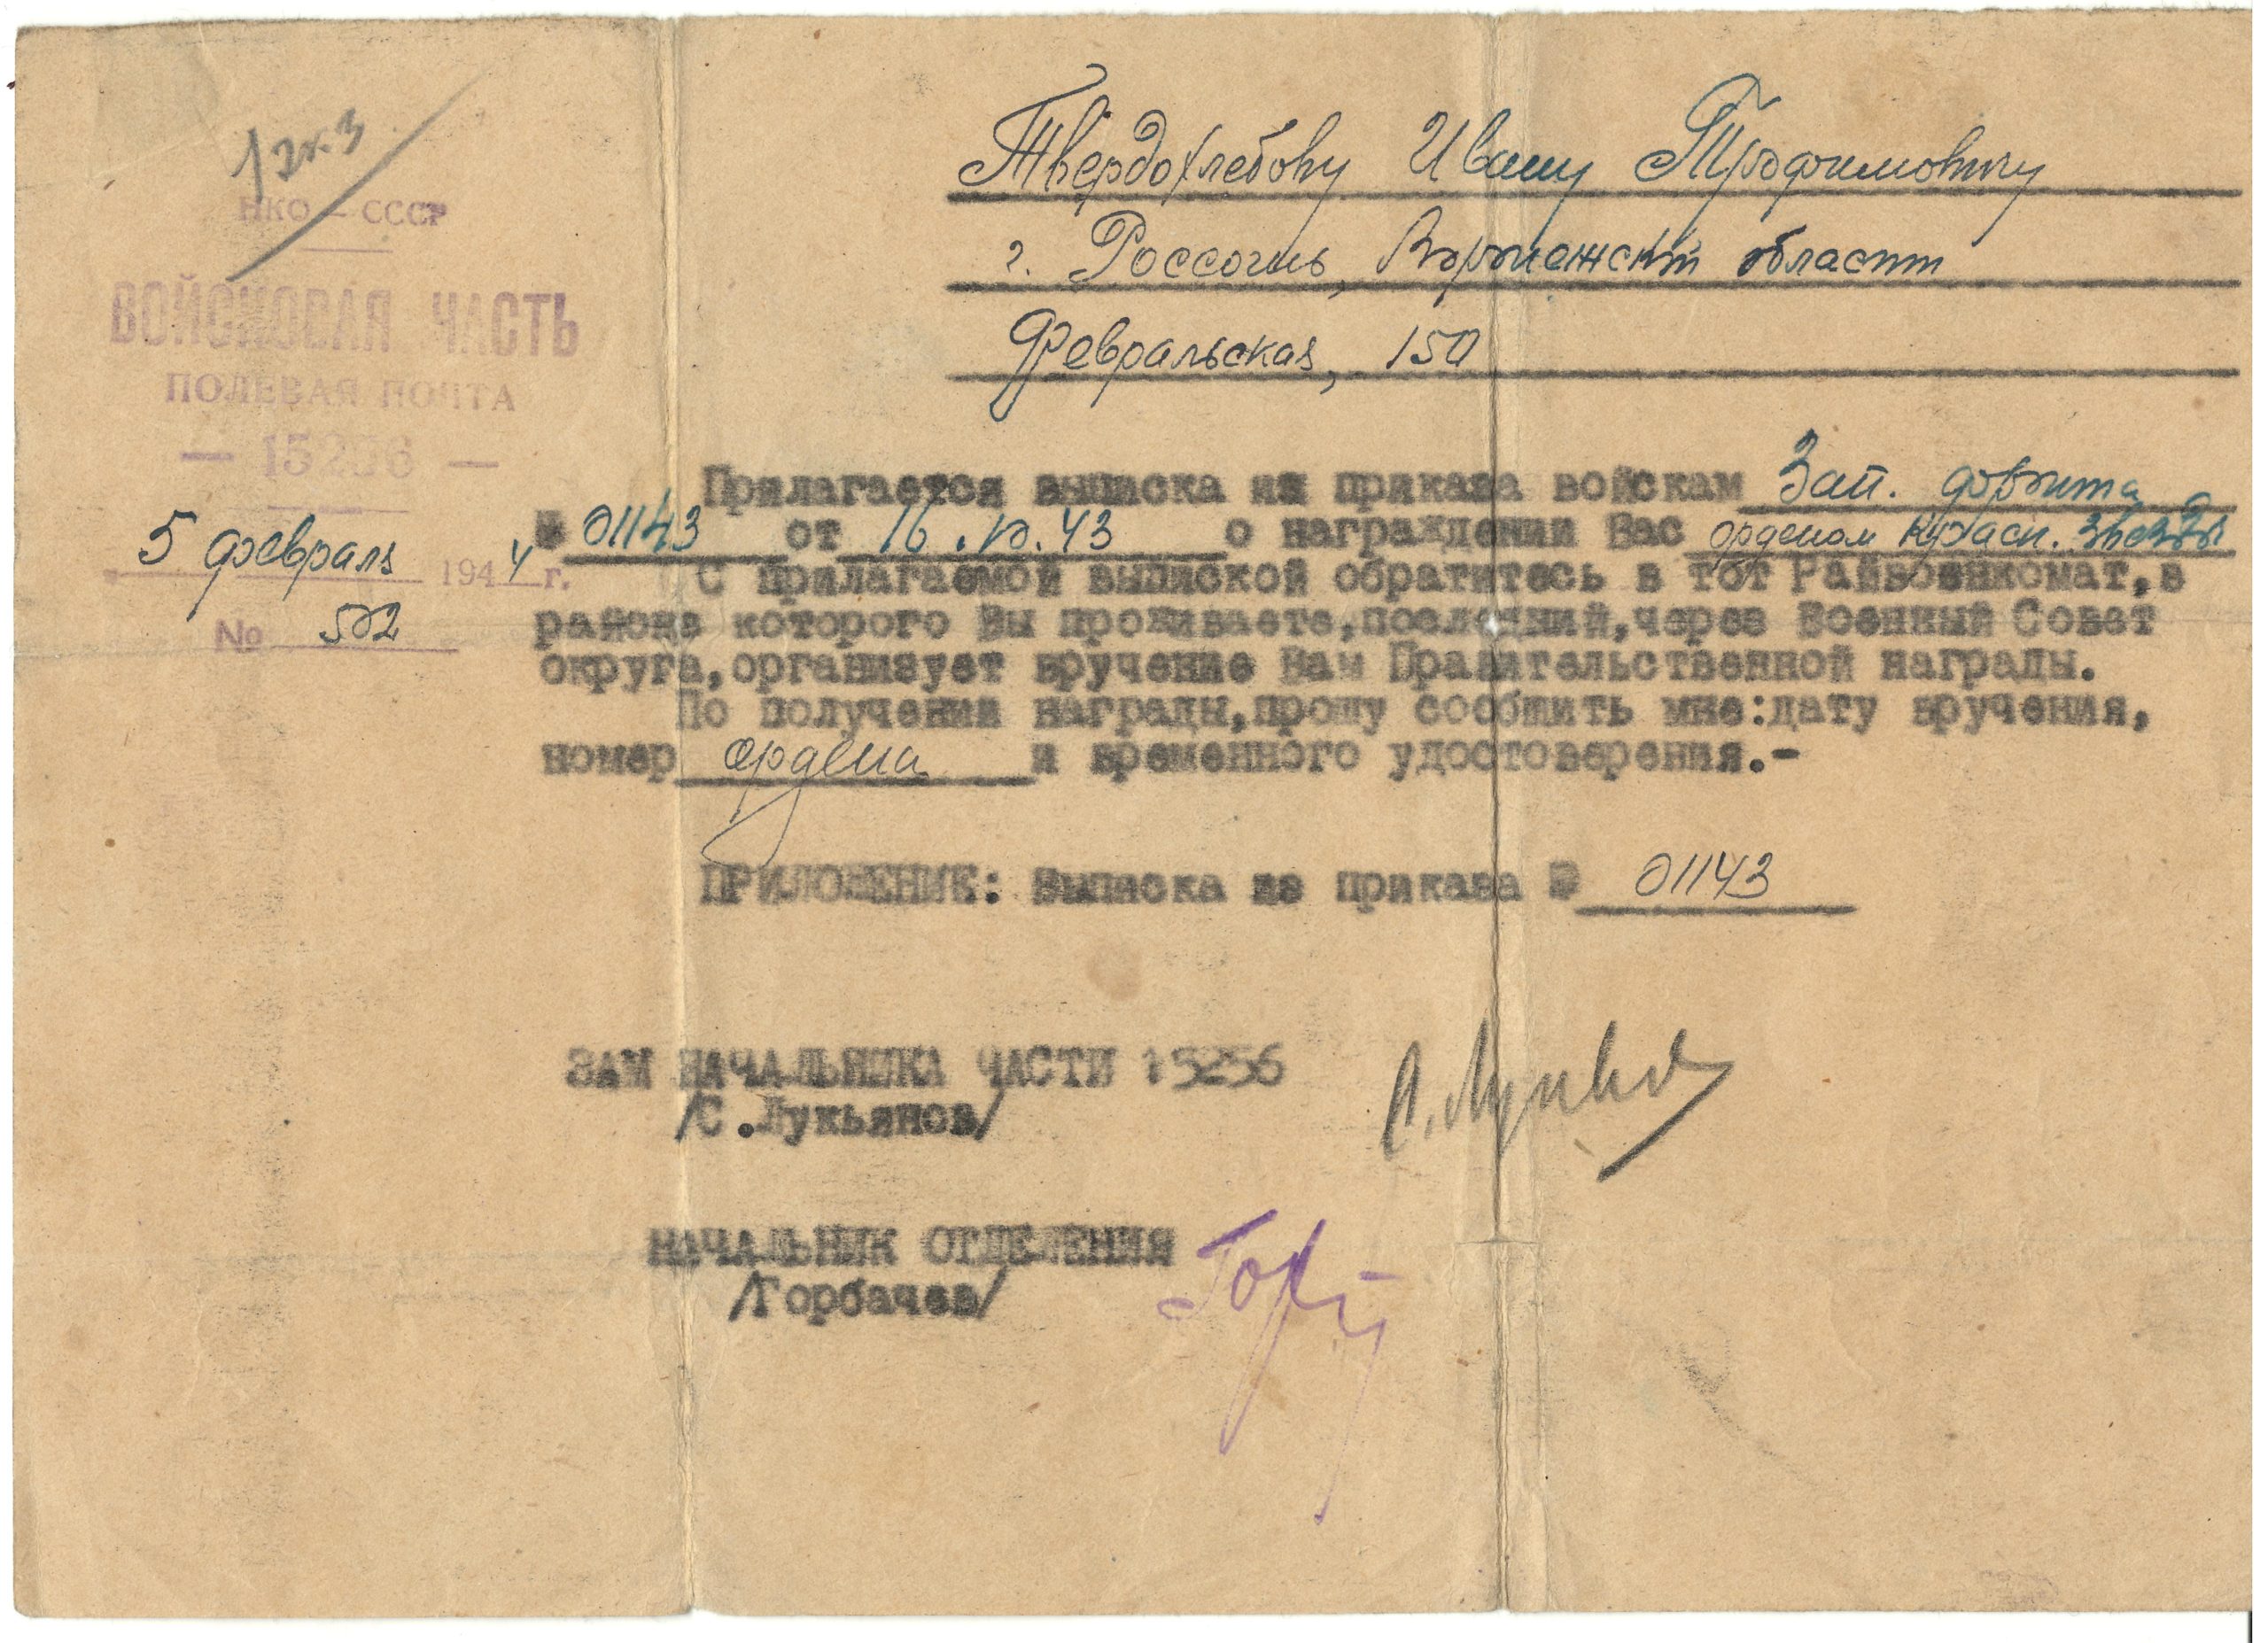 1 экз
НКО – СССР
ВОЙСКОВАЯ ЧАСТЬ
ПОЛЕВАЯ ПОЧТА
— 15256 —
5 февраль 1944 г.
№ 502
Твердохлебову Ивану Трофимовичу
г. Россошь, Воронежской области
Февральская, 150
Прилагается выписка из приказа войскам Зап. фронта
№ 01143 от 16.10.43 о награждении Вас орденом Красн. Звезды
С прилагаемой выпиской обратитесь в тот Райвоенкомат, в
районе которого Вы проживаете, последний, через Военный Совет
округа, организует вручение Вам Правительственной награды.
По получении награды, прошу сообщить мне: дату вручения,
номер ордена и временного удостоверения.-
ПРИЛОЖЕНИЕ: Выписка из приказа № 01143
ЗАМ НАЧАЛЬНИКА ЧАСТИ 15256
/С.Лукьянов/
НАЧАЛЬНИК ОТДЕЛЕНИЯ
/Горбачев/